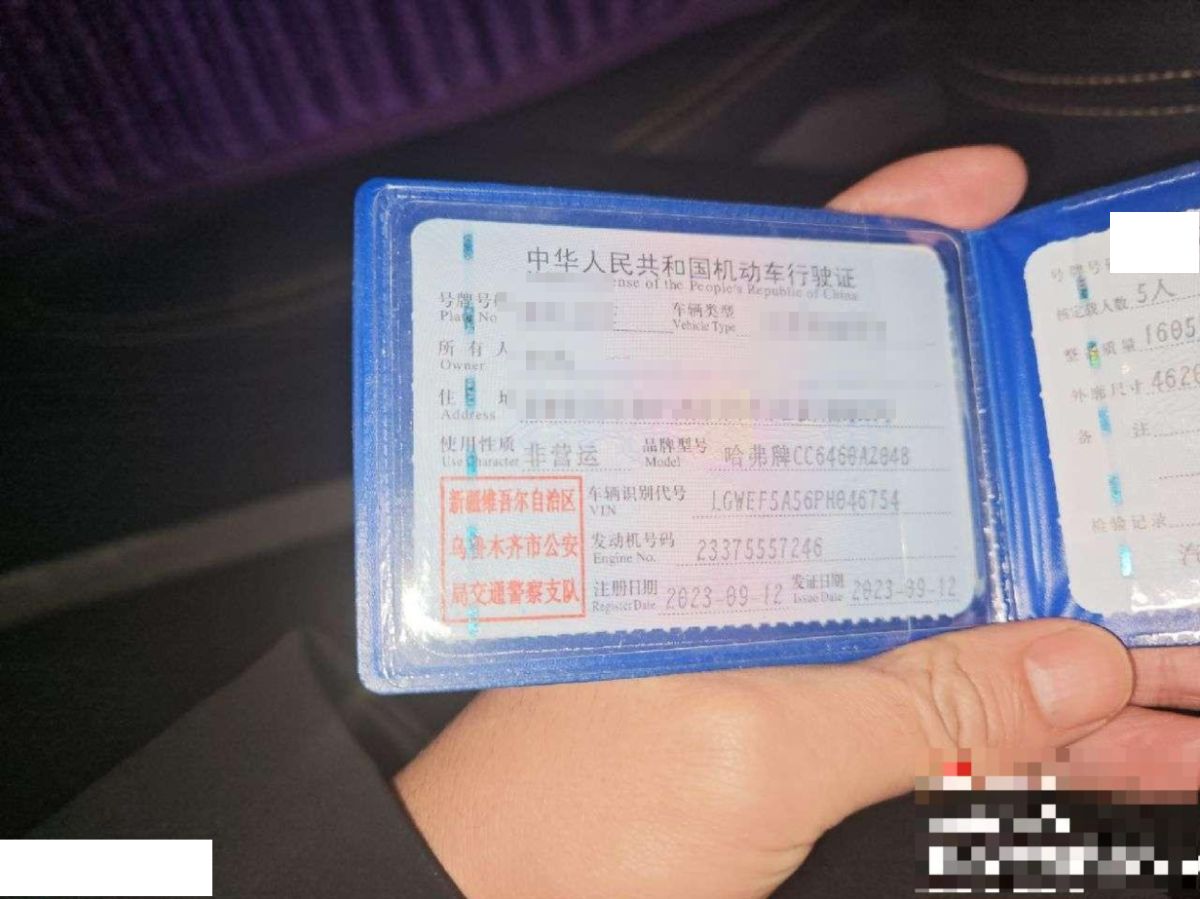 中华人民共和国机动车行驶证
ense of the People's Republic of China
号牌号
Plate No
车辆类型
Vehicle Type
所有人
Owner
住
Address
使用性质 非营运
Use Character
品牌型号 哈弗牌CC6460AZ04B
Model
新疆维吾尔自治区
乌鲁木齐市公安
局交通警察支队
车辆识别代号 LGWEF5A56PH046754
VIN
发动机号码 23375557246
Engine No.
注册日期 2023-09-12
Register Date
发证日期 2023-09-12
Issue Date
号牌号
核定载人数 5人
整备质量 1605
外廓尺寸 4620
备注
检验记录